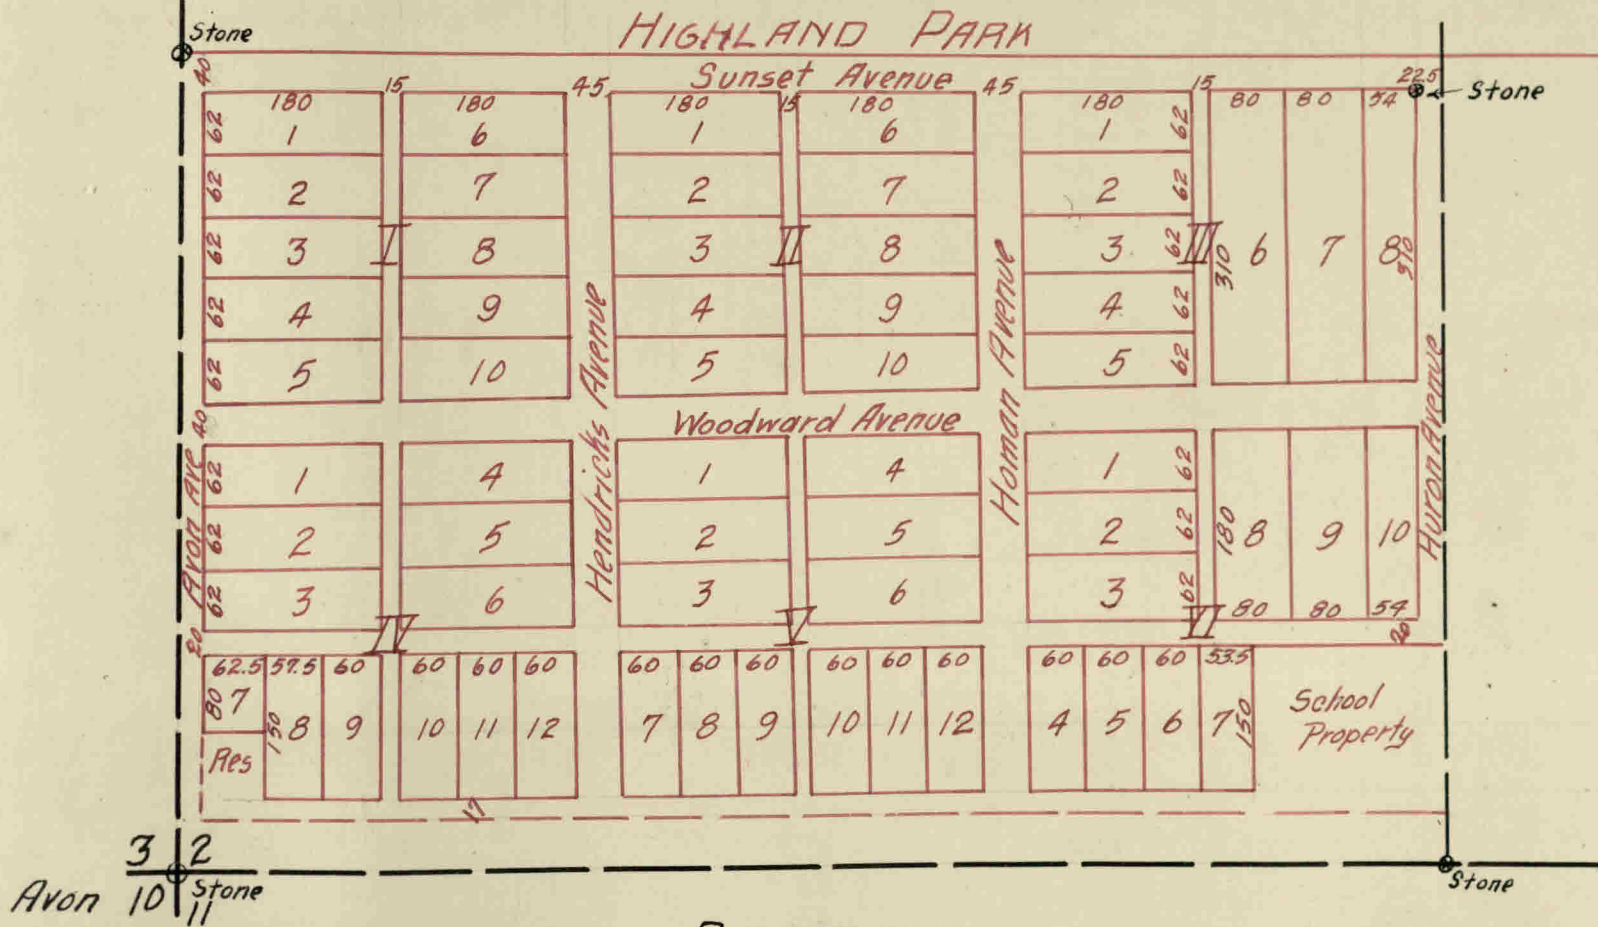 Stone
HIGHLAND PARK
40
Sunset Avenue
22.5
Stone
15 45 15 45 15
180 180 180 180 180 80 80 54
62 1 6 1 6 1 62
62 2 7 2 7 2 62
62 3 I 8 3 II 8 3 62 III 310 6 7 8 310
62 4 9 4 9 4 62
62 5 10 5 10 5 62
Hendricks Avenue
Homan Avenue
Huron Avenue
Avon Ave
40
Woodward Avenue
62 1 4 1 4 1 62
62 2 5 2 5 2 62 180 8 9 10
62 3 6 3 6 3 62 80 80 54
20 IV V VI 20
62.5 57.5 60 60 60 60 60 60 60 60 60 60 60 60 60 53.5
80 7 150 8 9 10 11 12 7 8 9 10 11 12 4 5 6 7 150
School
Property
Res
17
3 2
Avon 10 11
Stone
Stone